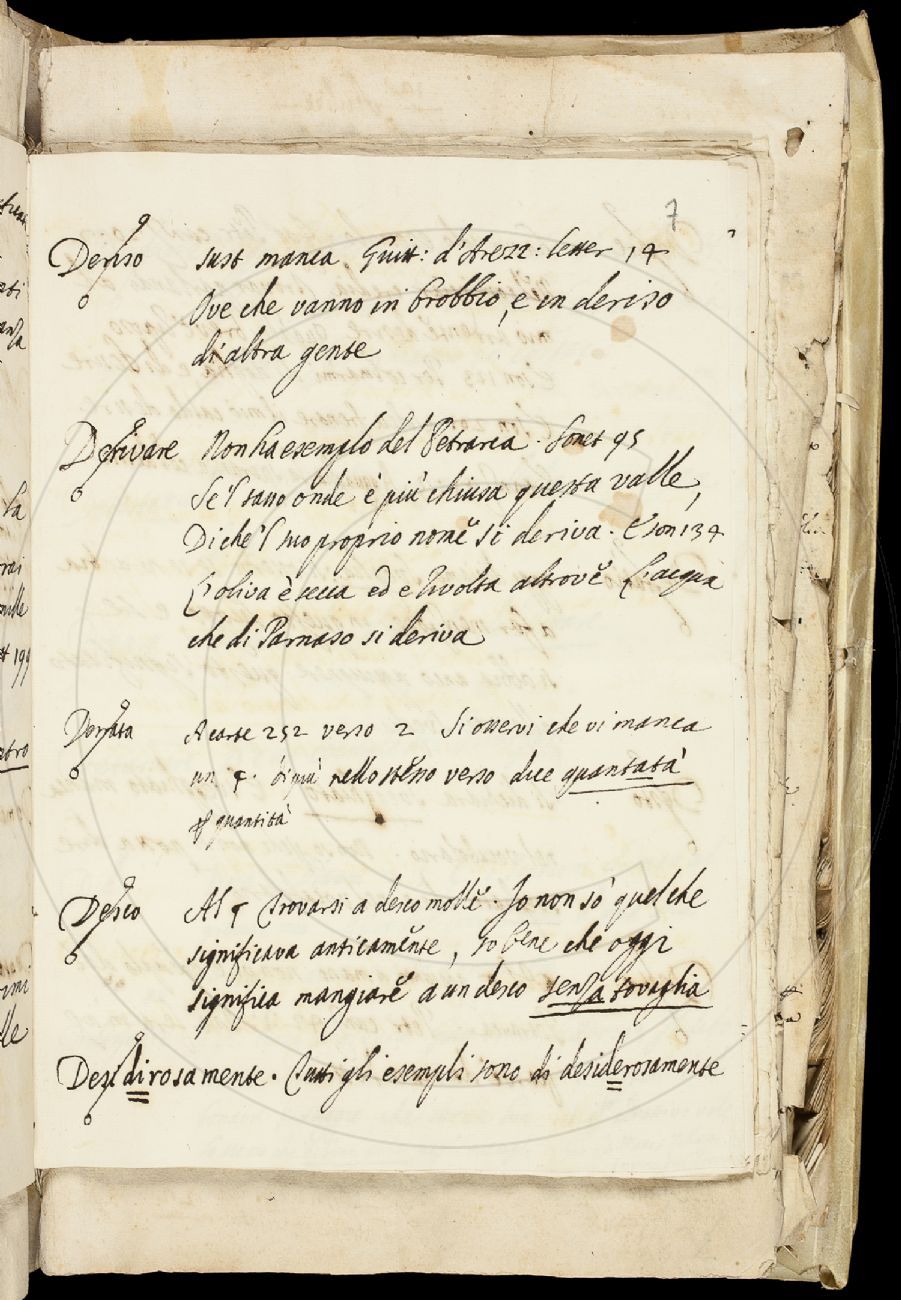 7
Deriso sust manca Guitt: d'Arezz: letter 14
Ove che vanno in brobbio, e in deriso
di altra gente
Derivare Non ha esempio del Petrarca. Sonet 95
Se'l sasso onde è più chiusa questa valle,
Di che'l suo proprio nome si deriva. E son 134
L'oliva è secca ed e rivolta altrove L'acqua
che di Parnaso si deriva
Derrata A carte 252 verso 2 Si osservi che vi manca
un §. di più nello stesso verso dice quantatà
quantità
Desco Al § trovarsi a desco molle. Io non sò quel che
significava anticamente, so bene che oggi
significa mangiare a un desco senza tovaglia
Desidirosamente. Tutti gli esempli sono di desiderosamente
la
rai
mille
et 199
atro
imi
lle